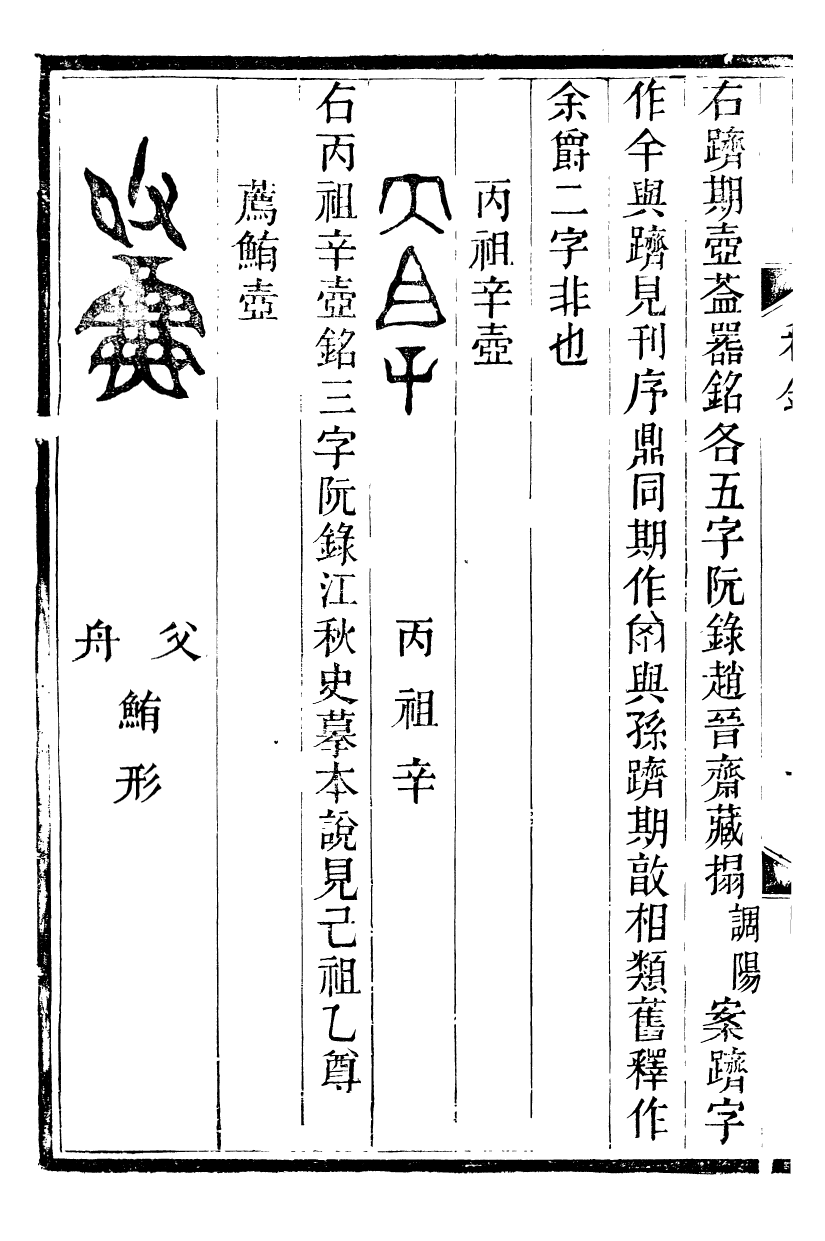 右躋期壺葢器銘各五字阮錄趙晉齋藏搨調陽案躋字
作與躋見刊序鼎同期作與孫躋期敔相類舊釋作
余爵二字非也
丙祖辛壺
丙祖辛
右丙祖辛壺銘三字阮錄江秋史摹本說見己祖乙尊
薦鮪壺
父
舟
鮪形